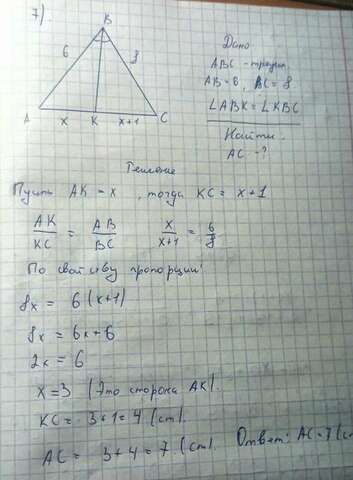 7)
B
6
8
A
x
K
x+1
C
Дано
ABC - треуг.
AB=6, BC=8
∠ABK=∠KBC
Найти:
AC -?
Решение
Пусть AK = x, тогда KC = x+1
AK/KC = AB/BC x/x+1 = 6/8
По свойству пропорции:
8x = 6(x+1)
8x = 6x+6
2x = 6
x=3 (Это сторона AK).
KC = 3+1=4 (см).
AC = 3+4=7 (см). Ответ: AC=7 (см